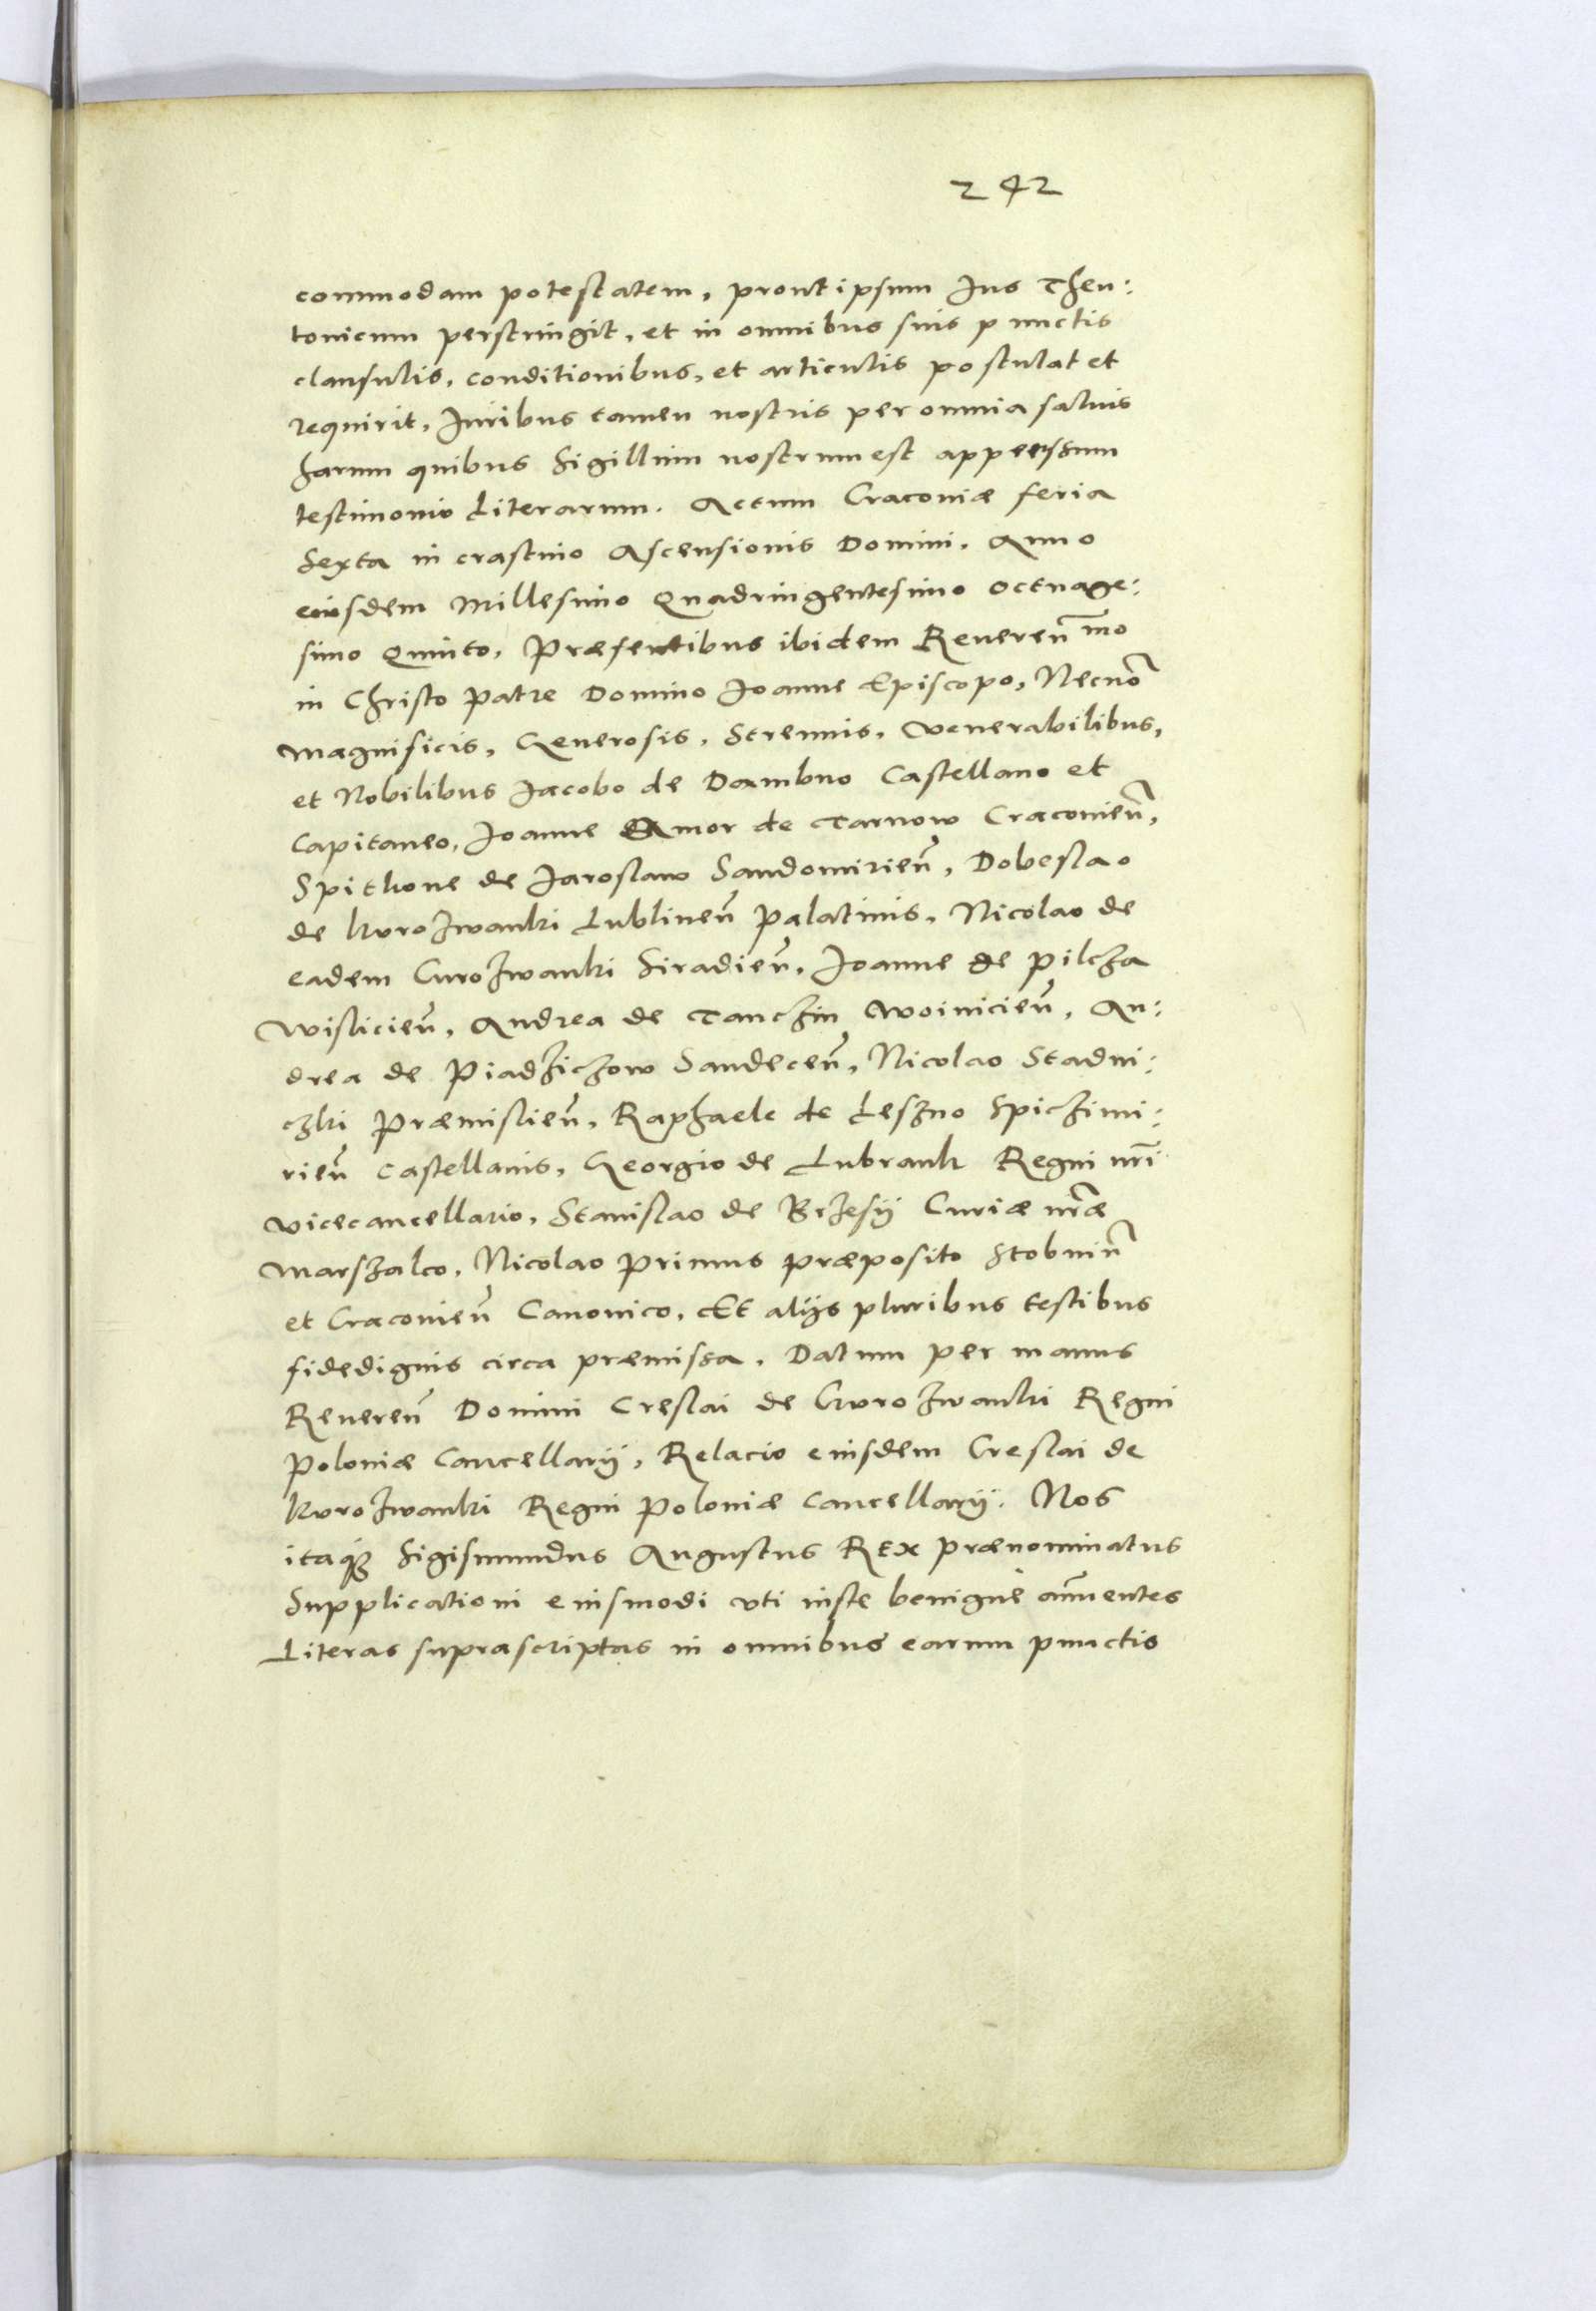 242
commodam potestatem, prout ipsum Jus Theu:
tonicum perstringit, et in omnibus suis punctis
clausulis, conditionibus, et articulis postulat et
requirit, Juribus tamen nostris per omnia saluis
harum quibus Sigillum nostrum est appenssum
testimonio Literarum. Actum Craconiæ feria
Sexta in crastino Ascensionis Domini. Anno
eiusdem Millesimo Quadringentesimo octuage:
simo Quinto, Præsentibus ibidem Reueren̄mo
in Christo Patre Domino Joanne Episcopo, Necnō
Magnificis, Generosis, Strenuis, Venerabilibus,
et Nobilibus Jacobo de Dambno Castellano et
Capitaneo, Joanne Amor de Tarnow Cracouien̄,
Spithone de Jaroslaw Sandomirien̄, Dobeslao
de Kurozwanki Lublinen̄ Palatinis, Nicolao de
eadem Curozwanki Siradien̄, Joanne de Pilcza
Wislicien̄, Andrea de Tanczin Woinicien̄, An:
drea de Piadziczow Sandecen̄, Nicolao Stadni:
czki Præmislien̄, Raphaele de Leszno Spiczimi:
rien̄ Castellanis, Georgio de Lubrank Regni nr̄i
Vicecancellario, Stanislao de Brzesÿ Curiæ nr̄æ
Marszalco, Nicolao Primus præposito Stobnin̄
et Cracouien̄ Canonico, Et alijs pluribus testibus
fidedignis circa præmissa. Datum per manus
Reueren̄ Domini Creslai de Kurozwanki Regni
Poloniæ Cancellarij, Relacio eiusdem Creslai de
Kurozwanki Regni Poloniæ Cancellarij. Nos
itaqꝫ Sigismundus Augustus Rex prænominatus
Supplicationi eiusmodi vti iuste benignè an̄uentes
Literas suprascriptas in omnibus earum punctis